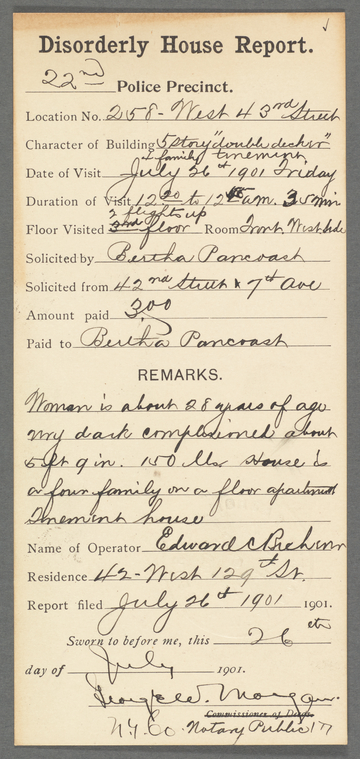 Disorderly House Report.
22nd Police Precinct.
Location No. 258 - West 43rd Street
Character of Building 5 story "double decker"
4 family tenement
Date of Visit July 26th 1901 Friday
Duration of Visit 12 20 to 12 45 am.
2 flights up
Floor Visited 3rd floor Room Front West side
Solicited by Bertha Pancoast
Solicited from 42nd Street & 7th Ave
Amount paid 3.00
Paid to Bertha Pancoast
REMARKS.
Woman is about 28 years of age
very dark complexioned about
5 ft 9 in. 150 lbs. House is
a four family on a floor apartment
Tenement house
Name of Operator Edward C
Residence 42 - West 129th St.
Report filed July 26th 1901 1901.
Sworn to before me, this 26 eth
day of July 1901.
George W. Morgan
Commissioner of Deeds.
N.Y. Co. Notary Public